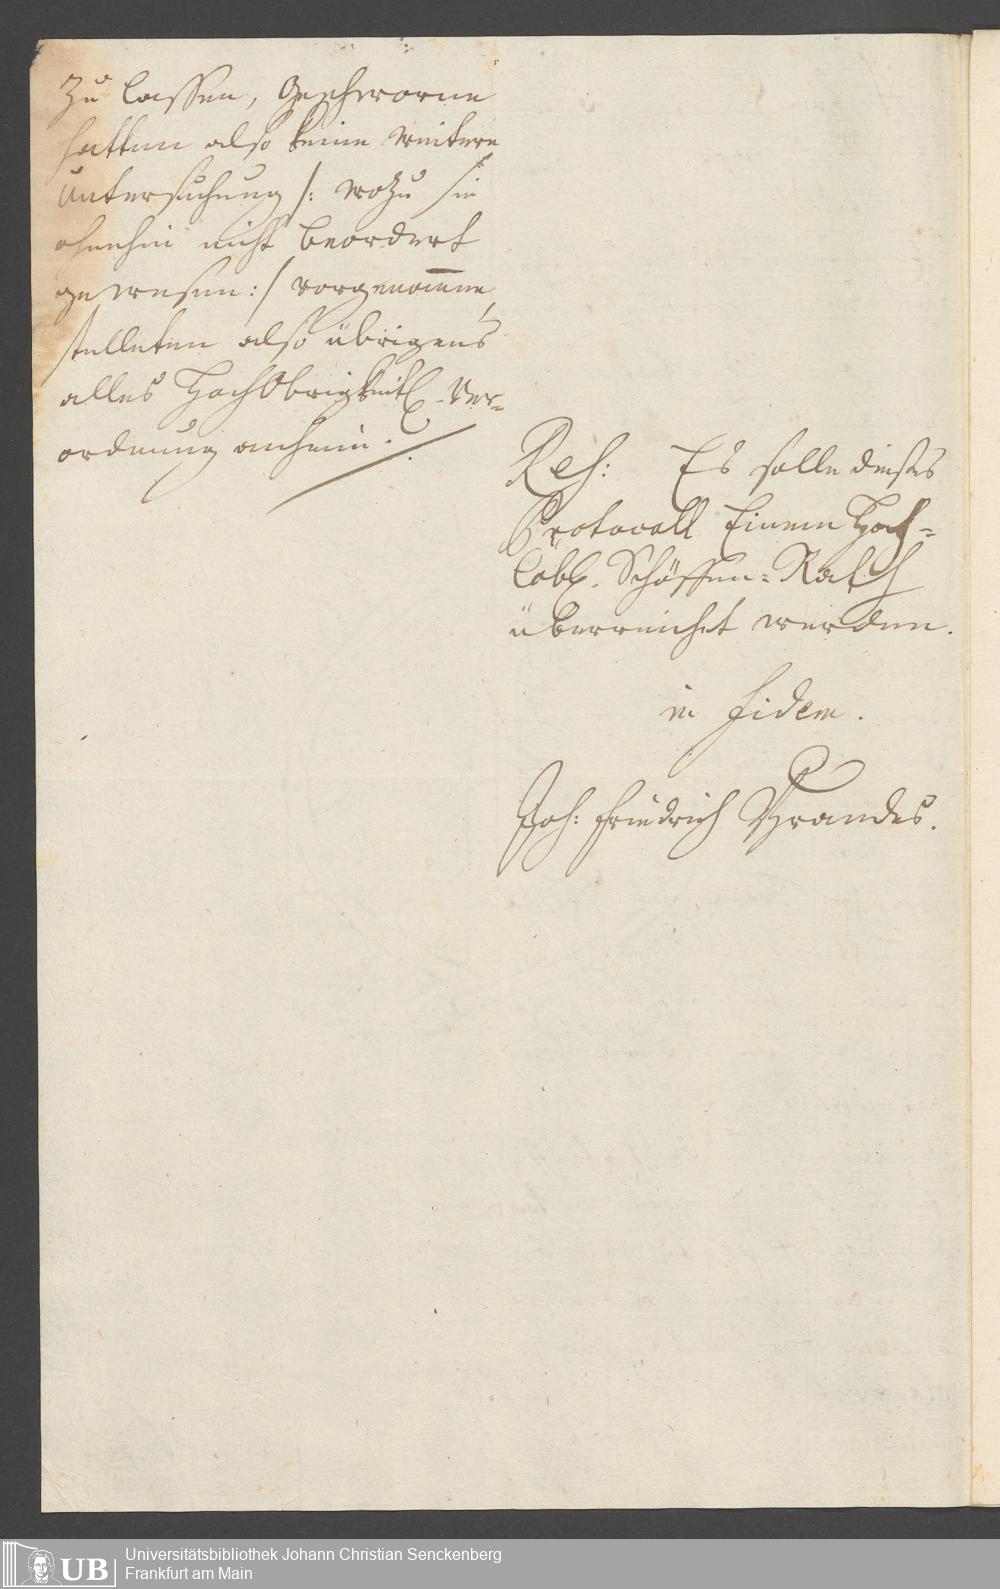 zu lassen, Geschworne
hatten also keine weitere
Untersuchung /: wozu sie
ohnehin nicht beordert
gewesen :/ vorgenom̅en,
stelleten also übrigens
alles HochObrigkeitl. Ver-
ordnung anheim.
Res: Es solle dießes
Protocoll Einem Hoch-
löbl. Schöffen-Rath
überreichet werden.
in fidem.
Joh: Friedrich Brandes.
UB
Universitätsbibliothek Johann Christian Senckenberg
Frankfurt am Main